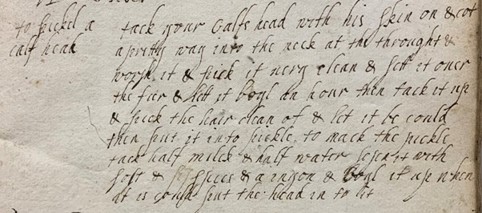 to pickel a
calf head
tack your Calfs head with his skin on & cot
a prity way into the neck at the throught &
worsh it & pick it uery clean & sett it ouer
the fier & lett it boyl an hour then tack it up
& pick the hair clean of & let it be could
then put it into pickle. to mack the pickle
tack half milck & half water with
solt & spices & a inyon & boyl it up when
at is could put the head in to it